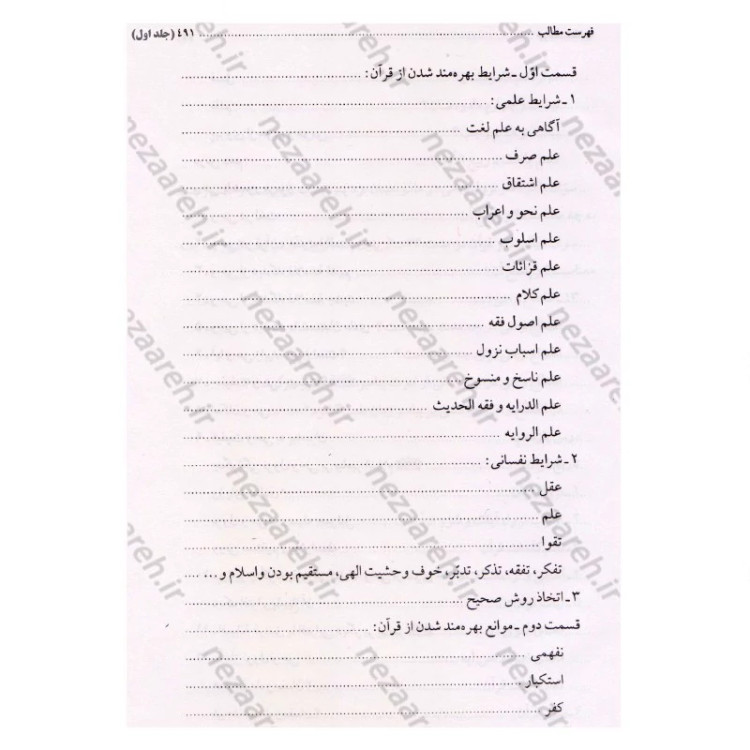 فهرست مطالب ........ ۴۹۱ (جلد اول)
قسمت اوّل ـ شرایط بهره‌مند شدن از قرآن: ........
۱ ـ شرایط علمی: ........
آگاهی به علم لغت ........
علم صرف ........
علم اشتقاق ........
علم نحو و اعراب ........
علم اسلوب ........
علم قرائات ........
علم کلام ........
علم اصول فقه ........
علم اسباب نزول ........
علم ناسخ و منسوخ ........
علم الدرایه و فقه الحدیث ........
علم الروایه ........
۲ ـ شرایط نفسانی: ........
عقل ........
علم ........
تقوا ........
تفکر، تفقه، تذکر، تدبّر، خوف و خشیت الهی، مستقیم بودن و اسلام و ... ........
۳ ـ اتخاذ روش صحیح ........
قسمت دوم ـ موانع بهره‌مند شدن از قرآن: ........
نفهمی ........
استکبار ........
کفر ........
nezaareh.ir